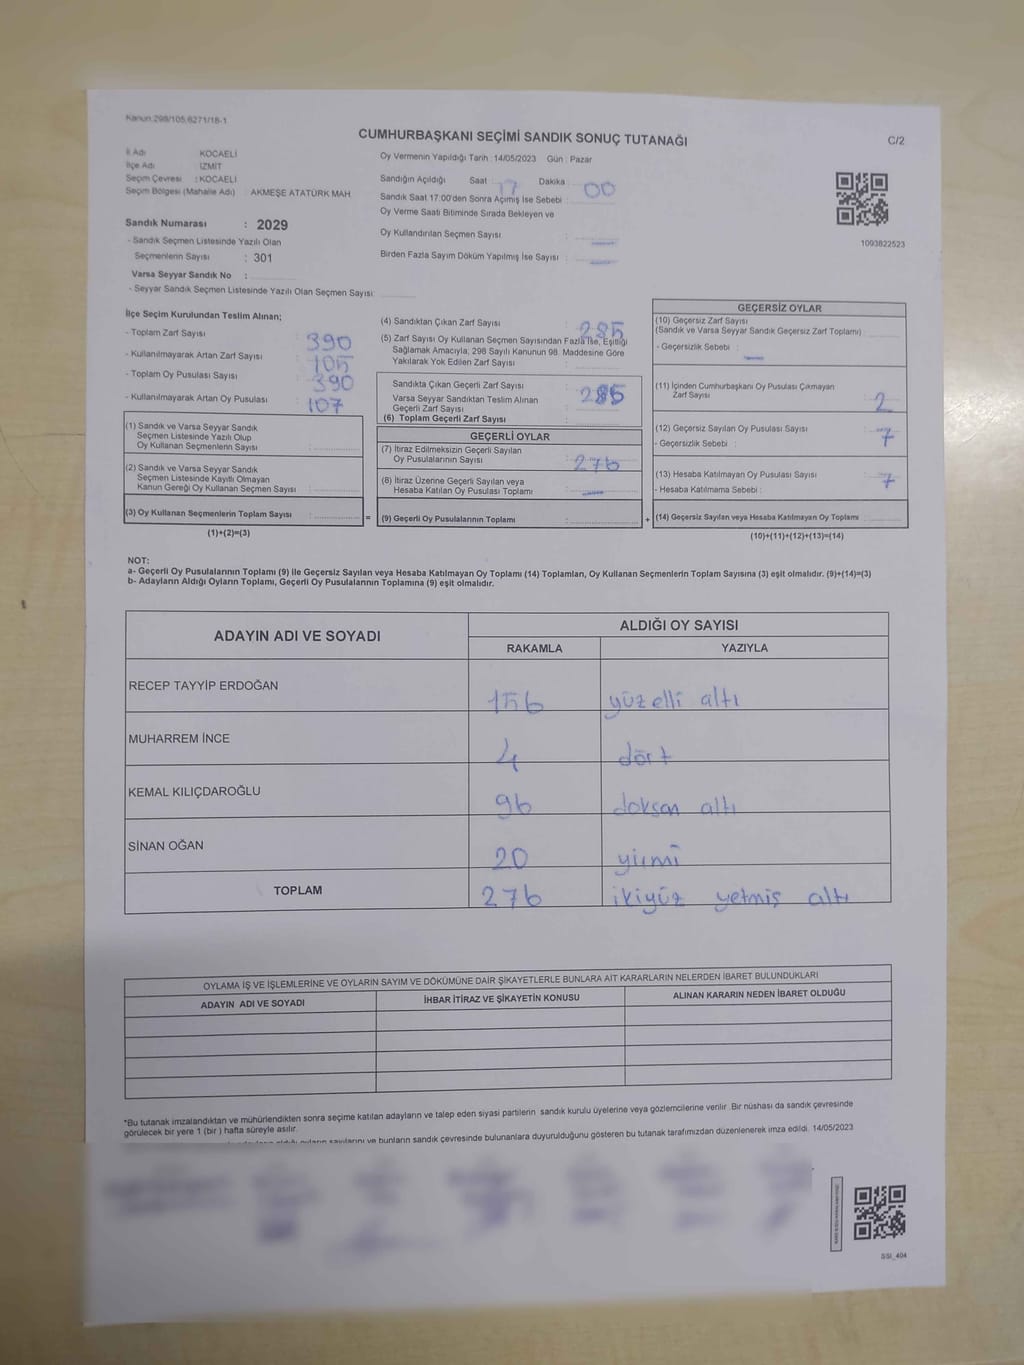 Kanun:298/105,6271/18-1
CUMHURBAŞKANI SEÇİMİ SANDIK SONUÇ TUTANAĞI
C/2
İl Adı : KOCAELİ
İlçe Adı : İZMİT
Seçim Çevresi : KOCAELİ
Seçim Bölgesi (Mahalle Adı) : AKMEŞE ATATÜRK MAH
Oy Vermenin Yapıldığı Tarih : 14/05/2023 Gün : Pazar
Sandığın Açıldığı Saat : 17 Dakika : 00
Sandık Saat 17:00'den Sonra Açılmış İse Sebebi :
Oy Verme Saati Bitiminde Sırada Bekleyen ve
Oy Kullandırılan Seçmen Sayısı : —
Birden Fazla Sayım Döküm Yapılmış İse Sayısı : —
1093822523
Sandık Numarası : 2029
- Sandık Seçmen Listesinde Yazılı Olan
Seçmenlerin Sayısı : 301
Varsa Seyyar Sandık No :
- Seyyar Sandık Seçmen Listesinde Yazılı Olan Seçmen Sayısı:
İlçe Seçim Kurulundan Teslim Alınan;
- Toplam Zarf Sayısı : 390
- Kullanılmayarak Artan Zarf Sayısı : 105
- Toplam Oy Pusulası Sayısı : 390
- Kullanılmayarak Artan Oy Pusulası : 107
(1) Sandık ve Varsa Seyyar Sandık
Seçmen Listesinde Yazılı Olup
Oy Kullanan Seçmenlerin Sayısı :
(2) Sandık ve Varsa Seyyar Sandık
Seçmen Listesinde Kayıtlı Olmayan
Kanun Gereği Oy Kullanan Seçmen Sayısı :
(3) Oy Kullanan Seçmenlerin Toplam Sayısı :
(1)+(2)=(3)
=
(4) Sandıktan Çıkan Zarf Sayısı : 285
(5) Zarf Sayısı Oy Kullanan Seçmen Sayısından Fazla İse, Eşitliği
Sağlamak Amacıyla, 298 Sayılı Kanunun 98. Maddesine Göre
Yakılarak Yok Edilen Zarf Sayısı :
Sandıkta Çıkan Geçerli Zarf Sayısı : 285
Varsa Seyyar Sandıktan Teslim Alınan
Geçerli Zarf Sayısı :
(6) Toplam Geçerli Zarf Sayısı :
GEÇERLİ OYLAR
(7) İtiraz Edilmeksizin Geçerli Sayılan
Oy Pusulalarının Sayısı : 276
(8) İtiraz Üzerine Geçerli Sayılan veya
Hesaba Katılan Oy Pusulası Toplamı : —
(9) Geçerli Oy Pusulalarının Toplamı :
+
GEÇERSİZ OYLAR
(10) Geçersiz Zarf Sayısı
(Sandık ve Varsa Seyyar Sandık Geçersiz Zarf Toplamı) :
- Geçersizlik Sebebi : —
(11) İçinden Cumhurbaşkanı Oy Pusulası Çıkmayan
Zarf Sayısı : 2
(12) Geçersiz Sayılan Oy Pusulası Sayısı : 7
- Geçersizlik Sebebi :
(13) Hesaba Katılmayan Oy Pusulası Sayısı : 7
- Hesaba Katılmama Sebebi :
(14) Geçersiz Sayılan veya Hesaba Katılmayan Oy Toplamı :
(10)+(11)+(12)+(13)=(14)
NOT:
a- Geçerli Oy Pusulalarının Toplamı (9) ile Geçersiz Sayılan veya Hesaba Katılmayan Oy Toplamı (14) Toplamları, Oy Kullanan Seçmenlerin Toplam Sayısına (3) eşit olmalıdır. (9)+(14)=(3)
b- Adayların Aldığı Oyların Toplamı, Geçerli Oy Pusulalarının Toplamına (9) eşit olmalıdır.
ADAYIN ADI VE SOYADI
ALDIĞI OY SAYISI
RAKAMLA YAZIYLA
RECEP TAYYİP ERDOĞAN 156 yüz elli altı
MUHARREM İNCE 4 dört
KEMAL KILIÇDAROĞLU 96 doksan altı
SİNAN OĞAN 20 yirmi
TOPLAM 276 ikiyüz yetmiş altı
OYLAMA İŞ VE İŞLEMLERİNE VE OYLARIN SAYIM VE DÖKÜMÜNE DAİR ŞİKAYETLERLE BUNLARA AİT KARARLARIN NELERDEN İBARET BULUNDUKLARI
ADAYIN ADI VE SOYADI İHBAR İTİRAZ VE ŞİKAYETİN KONUSU ALINAN KARARIN NEDEN İBARET OLDUĞU
*Bu tutanak imzalandıktan ve mühürlendikten sonra seçime katılan adayların ve talep eden siyasi partilerin sandık kurulu üyelerine veya gözlemcilerine verilir. Bir nüshası da sandık çevresinde
görülecek bir yere 1 (bir) hafta süreyle asılır.
oyların sayılarını ve bunların sandık çevresinde bulunanlara duyurulduğunu gösteren bu tutanak tarafımızdan düzenlenerek imza edildi. 14/05/2023
SSI_404